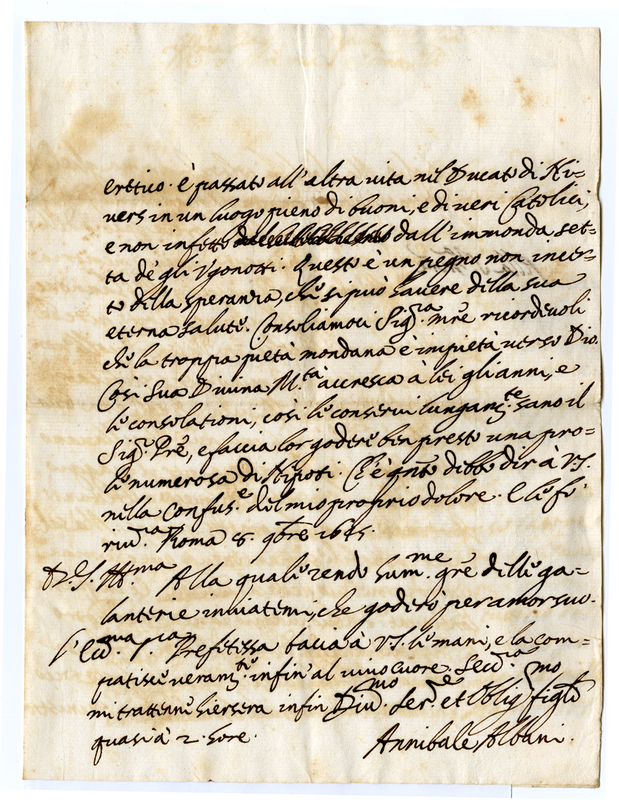 eretico è passato all'altra vita nel Ducato di Ni=
vers in un luogo pieno di buoni, e di veri Catolici,
e non infetto dall'immonda set=
ta de gli Vgonotti. Questo è un pegno non incer=
to della speranza, che si può havere della sua
eterna salute. Consoliamoci Sig.ra m're ricordevoli
che la troppa pietà mondana è impietà verso Dio.
Così Sua Divina M.tà accresca à lei gli anni, e
le consolationi, così le conservi lungam.te sano il
Sig.r P're, e faccia lor godere ben presto una pro=
le numerosa di Nipoti. Ch'è q'nto debbo dir à V.S.
nella confus.e del mio proprio dolore. E le fò
riv.a Roma 8. 9bre 1645.
Di V.S. Ill.ma
Alla quale rendo hum.me gr'e delle ga=
lanterie inviatemi, che goderò per amor suo.
l'Ecc.ma P'ran Prefetessa bacia à V.S. le mani, e la com=
patisce veram.te infin al vivo cuore. S. Ecc.za
mi trattenne hiersera infin Div.mo Ser.e et Oblig.mo figlo
quasi à 2. hore.
Annibale Albani.